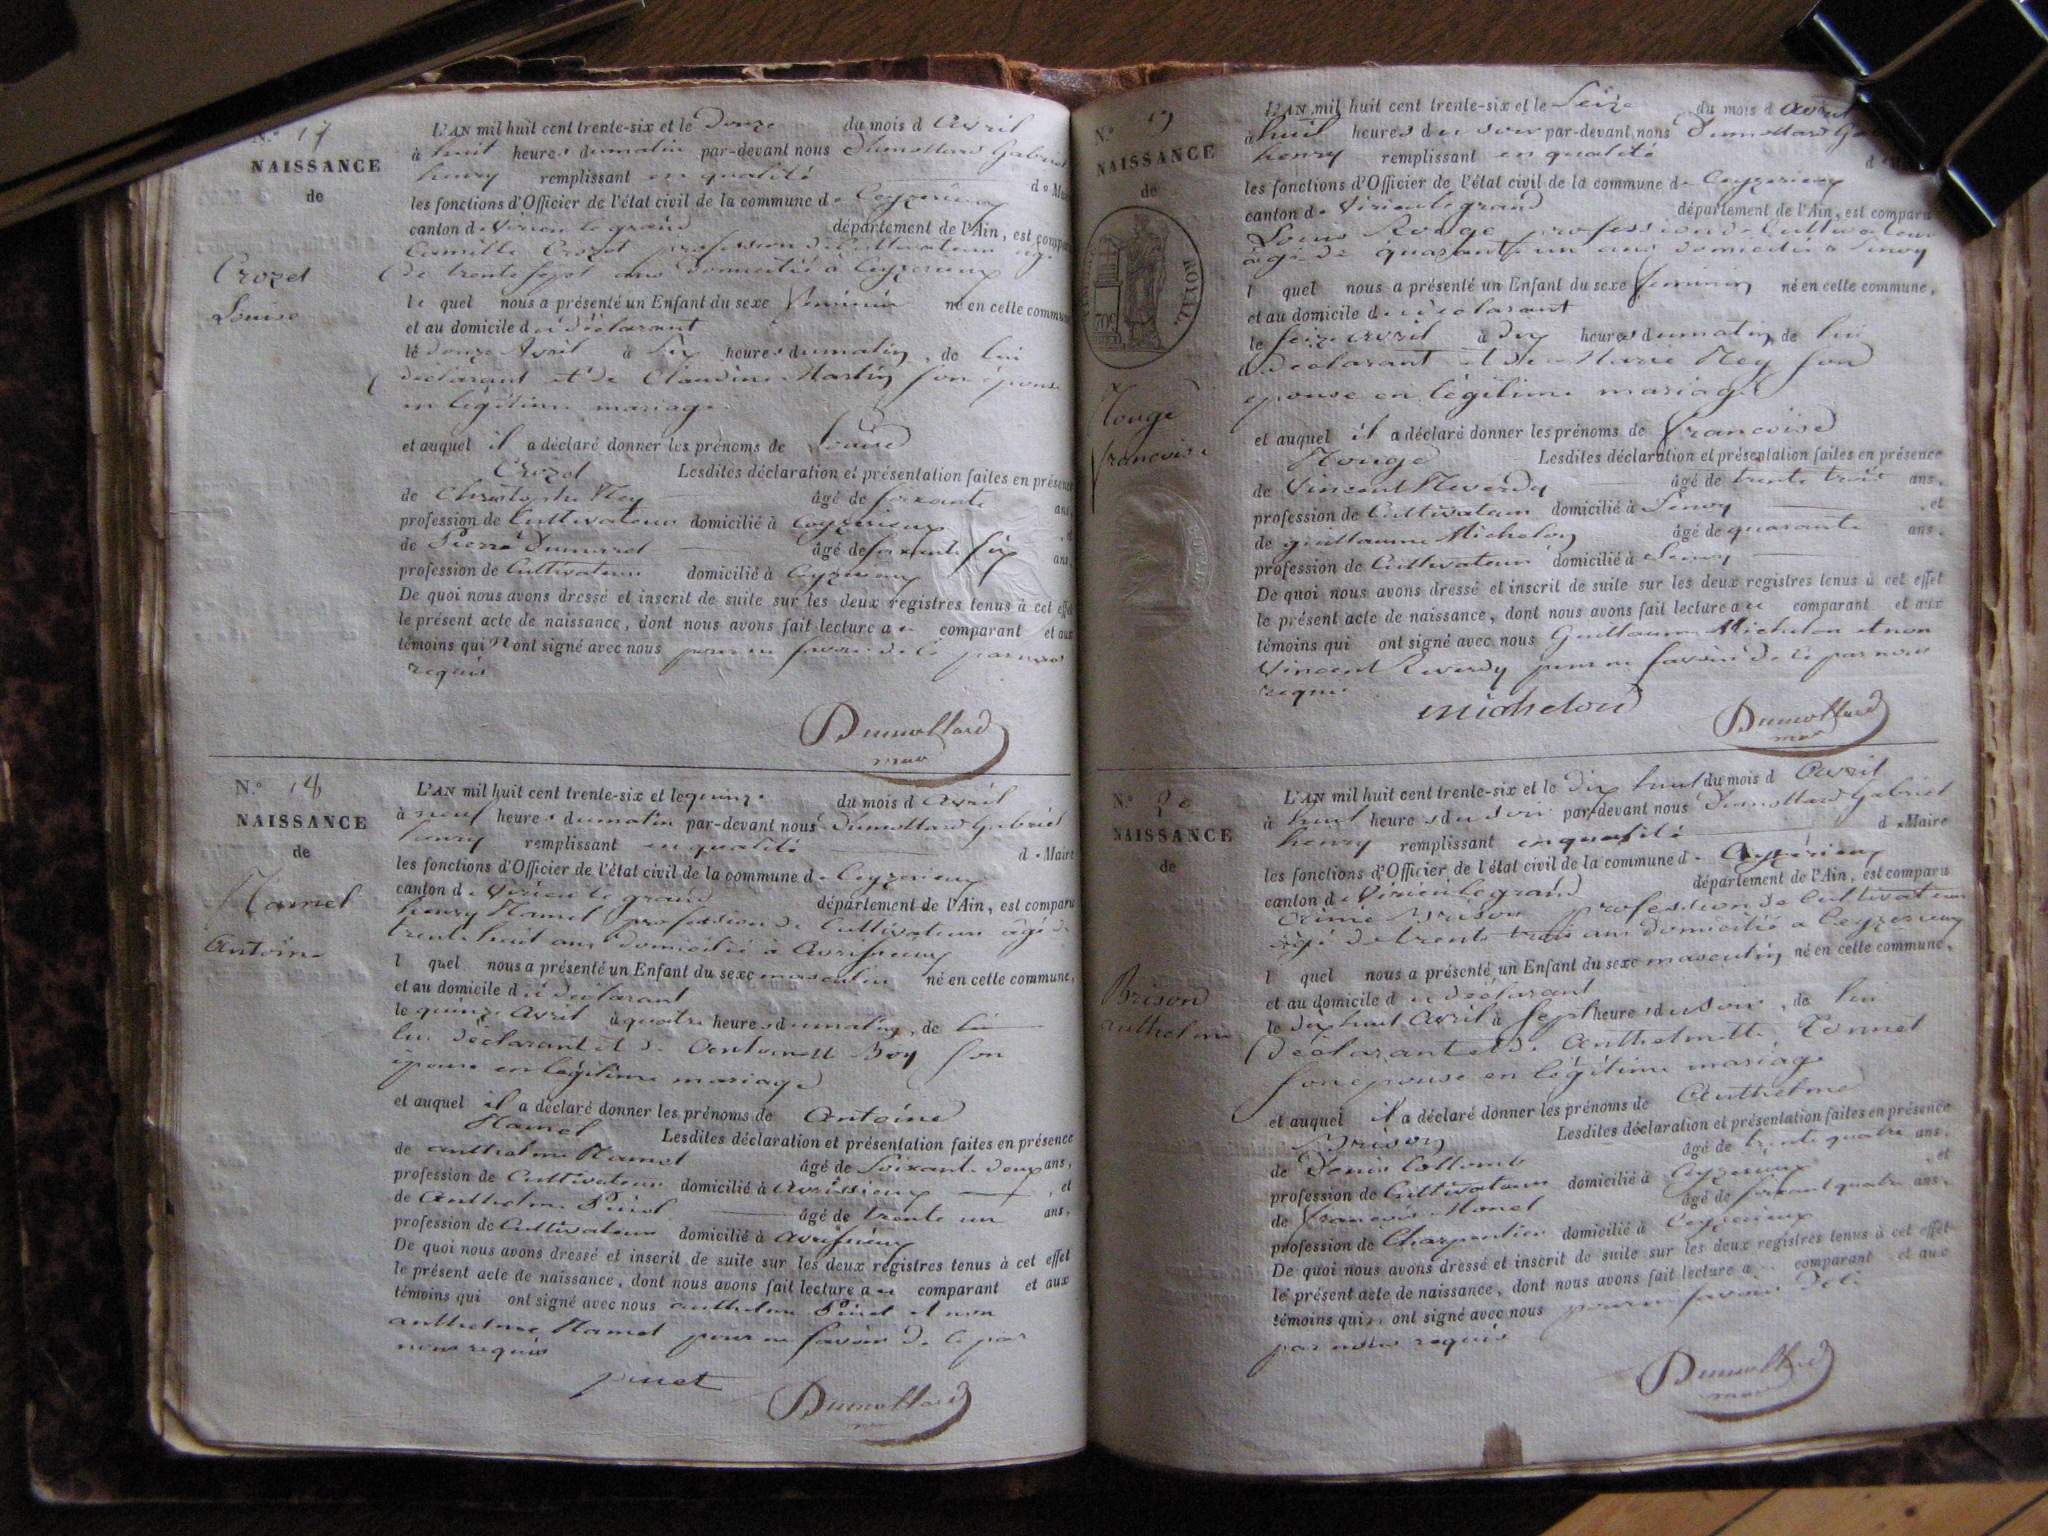 N.° 17
NAISSANCE
de
Crozet
Louise
L'AN mil huit cent trente-six et le Douze du mois d Avril
à huit heures du matin par-devant nous Dumollard Gabriel
henry remplissant en qualité de Maire
les fonctions d'Officier de l'état civil de la commune de Ceyzerieux
canton de Virieu le grand département de l'Ain, est comparu
Camille Crozet profession de Cultivateur agé
de trente sept ans domicilié à Ceyzerieux
le quel nous a présenté un Enfant du sexe féminin né en cette commune
et au domicile du déclarant
le douze Avril à six heures du matin, de lui
déclarant et de Claudine Martin son épouse
en légitime mariage
et auquel il a déclaré donner les prénoms de Louise
Crozet Lesdites déclaration et présentation faites en présence
de Christophe Rey âgé de soixante ans,
profession de Cultivateur domicilié à Ceyzerieux, et
de Pierre âgé de soixante six ans,
profession de Cultivateur domicilié à Ceyzerieux
De quoi nous avons dressé et inscrit de suite sur les deux registres tenus à cet effet
le présent acte de naissance, dont nous avons fait lecture au comparant et aux
témoins qui n'ont signé avec nous pour ne savoir de ce par nous
requis
Dumollard
maire
N.° 18
NAISSANCE
de
Hamel
Antoine
L'AN mil huit cent trente-six et le quinze du mois d Avril
à neuf heures du matin par-devant nous Dumollard Gabriel
henry remplissant en qualité de Maire
les fonctions d'Officier de l'état civil de la commune de Ceyzerieux
canton de Virieu le grand département de l'Ain, est comparu
henry Hamel profession de Cultivateur âgé de
trente huit ans domicilié à Avrissieux
l quel nous a présenté un Enfant du sexe masculin né en cette commune,
et au domicile du déclarant
le quinze Avril à quatre heures du matin, de lui
lui déclarant et de Antoinette Boy son
épouse en légitime mariage
et auquel il a déclaré donner les prénoms de Antoine
Hamel Lesdites déclaration et présentation faites en présence
de anthelme Hamel âgé de Soixante deux ans,
profession de Cultivateur domicilié à Avrissieux, et
de Anthelme Pinet âgé de trente un ans,
profession de Cultivateur domicilié à Avrissieux
De quoi nous avons dressé et inscrit de suite sur les deux registres tenus à cet effet
le présent acte de naissance, dont nous avons fait lecture au comparant et aux
témoins qui ont signé avec nous anthelme Pinet et non
anthelme Hamel pour ne savoir de ce par
nous requis
pinet
Dumollard
N.° 19
NAISSANCE
de
ROYAL
Rouge
francoise
L'AN mil huit cent trente-six et le Seize du mois d Avril
à huit heures du soir par-devant nous Dumollard
henry remplissant en qualité
les fonctions d'Officier de l'état civil de la commune de Ceyzerieux
canton de Virieu le grand département de l'Ain, est comparu
Louis Rouge profession de Cultivateur
âgé de quarante un ans domicilié à Senoy
l quel nous a présenté un Enfant du sexe féminin né en cette commune,
et au domicile du déclarant
le seize avril à dix heures du matin, de lui
déclarant et de Marie Rey son
épouse en légitime mariage
et auquel il a déclaré donner les prénoms de francoise
Rouge Lesdites déclaration et présentation faites en présence
de Vincent Reverdy âgé de trente trois ans,
profession de Cultivateur domicilié à Senoy, et
de guillaume Michelon âgé de quarante ans,
profession de Cultivateur domicilié à Senoy
De quoi nous avons dressé et inscrit de suite sur les deux registres tenus à cet effet
le présent acte de naissance, dont nous avons fait lecture au comparant et aux
témoins qui ont signé avec nous Guillaume Michelon et non
Vincent Reverdy pour ne savoir de ce par nous
requis
michelon
Dumollard
maire
N.° 20
NAISSANCE
de
Brison
anthelme
L'AN mil huit cent trente-six et le dix huit du mois d Avril
à huit heures du soir par-devant nous Dumollard Gabriel
henry remplissant en qualité de Maire
les fonctions d'Officier de l'état civil de la commune de Ceyzérieux
canton de Virieu le grand département de l'Ain, est comparu
Brison profession de Cultivateur
âgé de trente trois ans domicilié à Ceyzerieux
l quel nous a présenté un Enfant du sexe masculin né en cette commune,
et au domicile du déclarant
le dix huit Avril à sept heures du soir, de lui
Déclarant et de Anthelmette Tonnet
son épouse en légitime mariage
et auquel il a déclaré donner les prénoms de Anthelme
Brison Lesdites déclaration et présentation faites en présence
de Denis Collomb âgé de trente quatre ans,
profession de Cultivateur domicilié à Ceyzerieux, et
de francois Monet âgé de soixante quatre ans,
profession de Charpentier domicilié à Ceyzerieux
De quoi nous avons dressé et inscrit de suite sur les deux registres tenus à cet effet
le présent acte de naissance, dont nous avons fait lecture a comparant et aux
témoins qui n'ont signé avec nous pour ne savoir de ce
par nous requis
Dumollard
maire